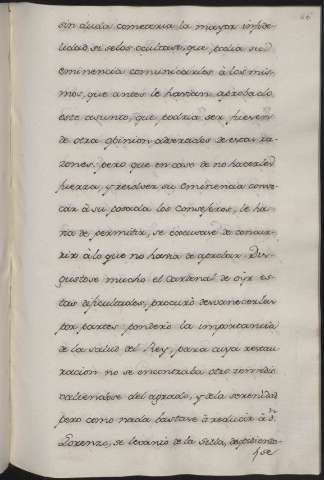 sin duda cometeria la mayor infide-
lidad si selos ocultase, que podia su
eminencia comunicarlos à los mis-
mos, que antes le havian aprobado
este asunto, que podria ser fuesen
de otra opinion advertidos de estas ra-
zones. pero que en caso de no hacerles
fuerza, y resolver su eminencia convo-
car à su posada los consejeros, le ha-
via de permitir, se escusase de concur-
rir à lo que no havia de aprobar. Dis-
gustose mucho el Cardenal de oyr es-
tas dificultades, procurò desvanecerlas
por partes: ponderò la importancia
de la salud del Rey, para cuya restau-
racion no se encontraba otro remedio
valiendose del agrado, y de la serenidad
pero como nada bastase à reducir à Dⁿ
Lorenzo, se levantò de la Silla,
se